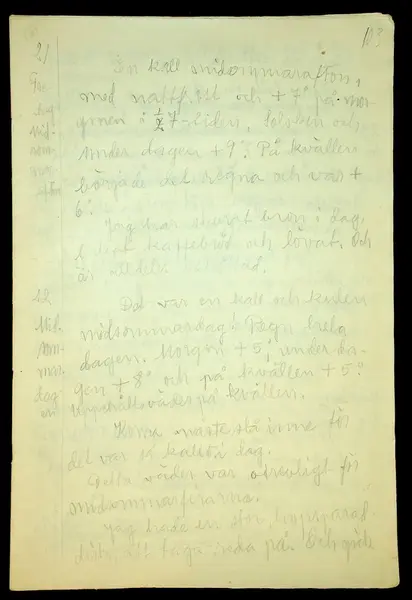 103
21
En kall midsommarafton,
med nattfrost och +7° på mor-
gonen i ½ 7-tiden, solsken och
under dagen +9°. På kvällen
började det regna och var +
6°.
Jag har skurat bron i dag,
kaffebröd och lövat. Och
är
22
Det var en kall och kulen
midsommardag! Regn hela
dagen. Morgon +5, under da-
gen +8° och på kvällen +5°.
Uppehållsväder på kvällen.
Korna måste stå inne för
det var så kallt i dag.
Detta väder var otrevligt för
midsommarfirarna.
Jag hade en stor
att taga reda på. Och gick